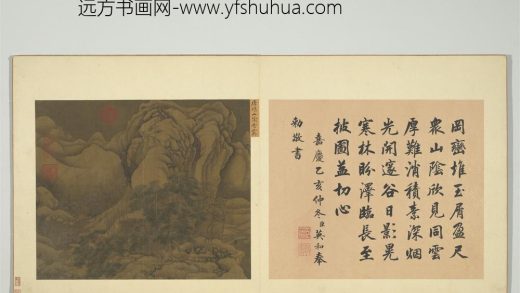 远方书画网-www.yfshuhua.com
岡巒堆玉屑盈尺
衆山陰欣見同雲
厚難消積素深烟
光開邃谷日影晃
寒林盼澤臨長至
披圖益切心
嘉慶乙亥仲冬臣英和奉
勅敬書